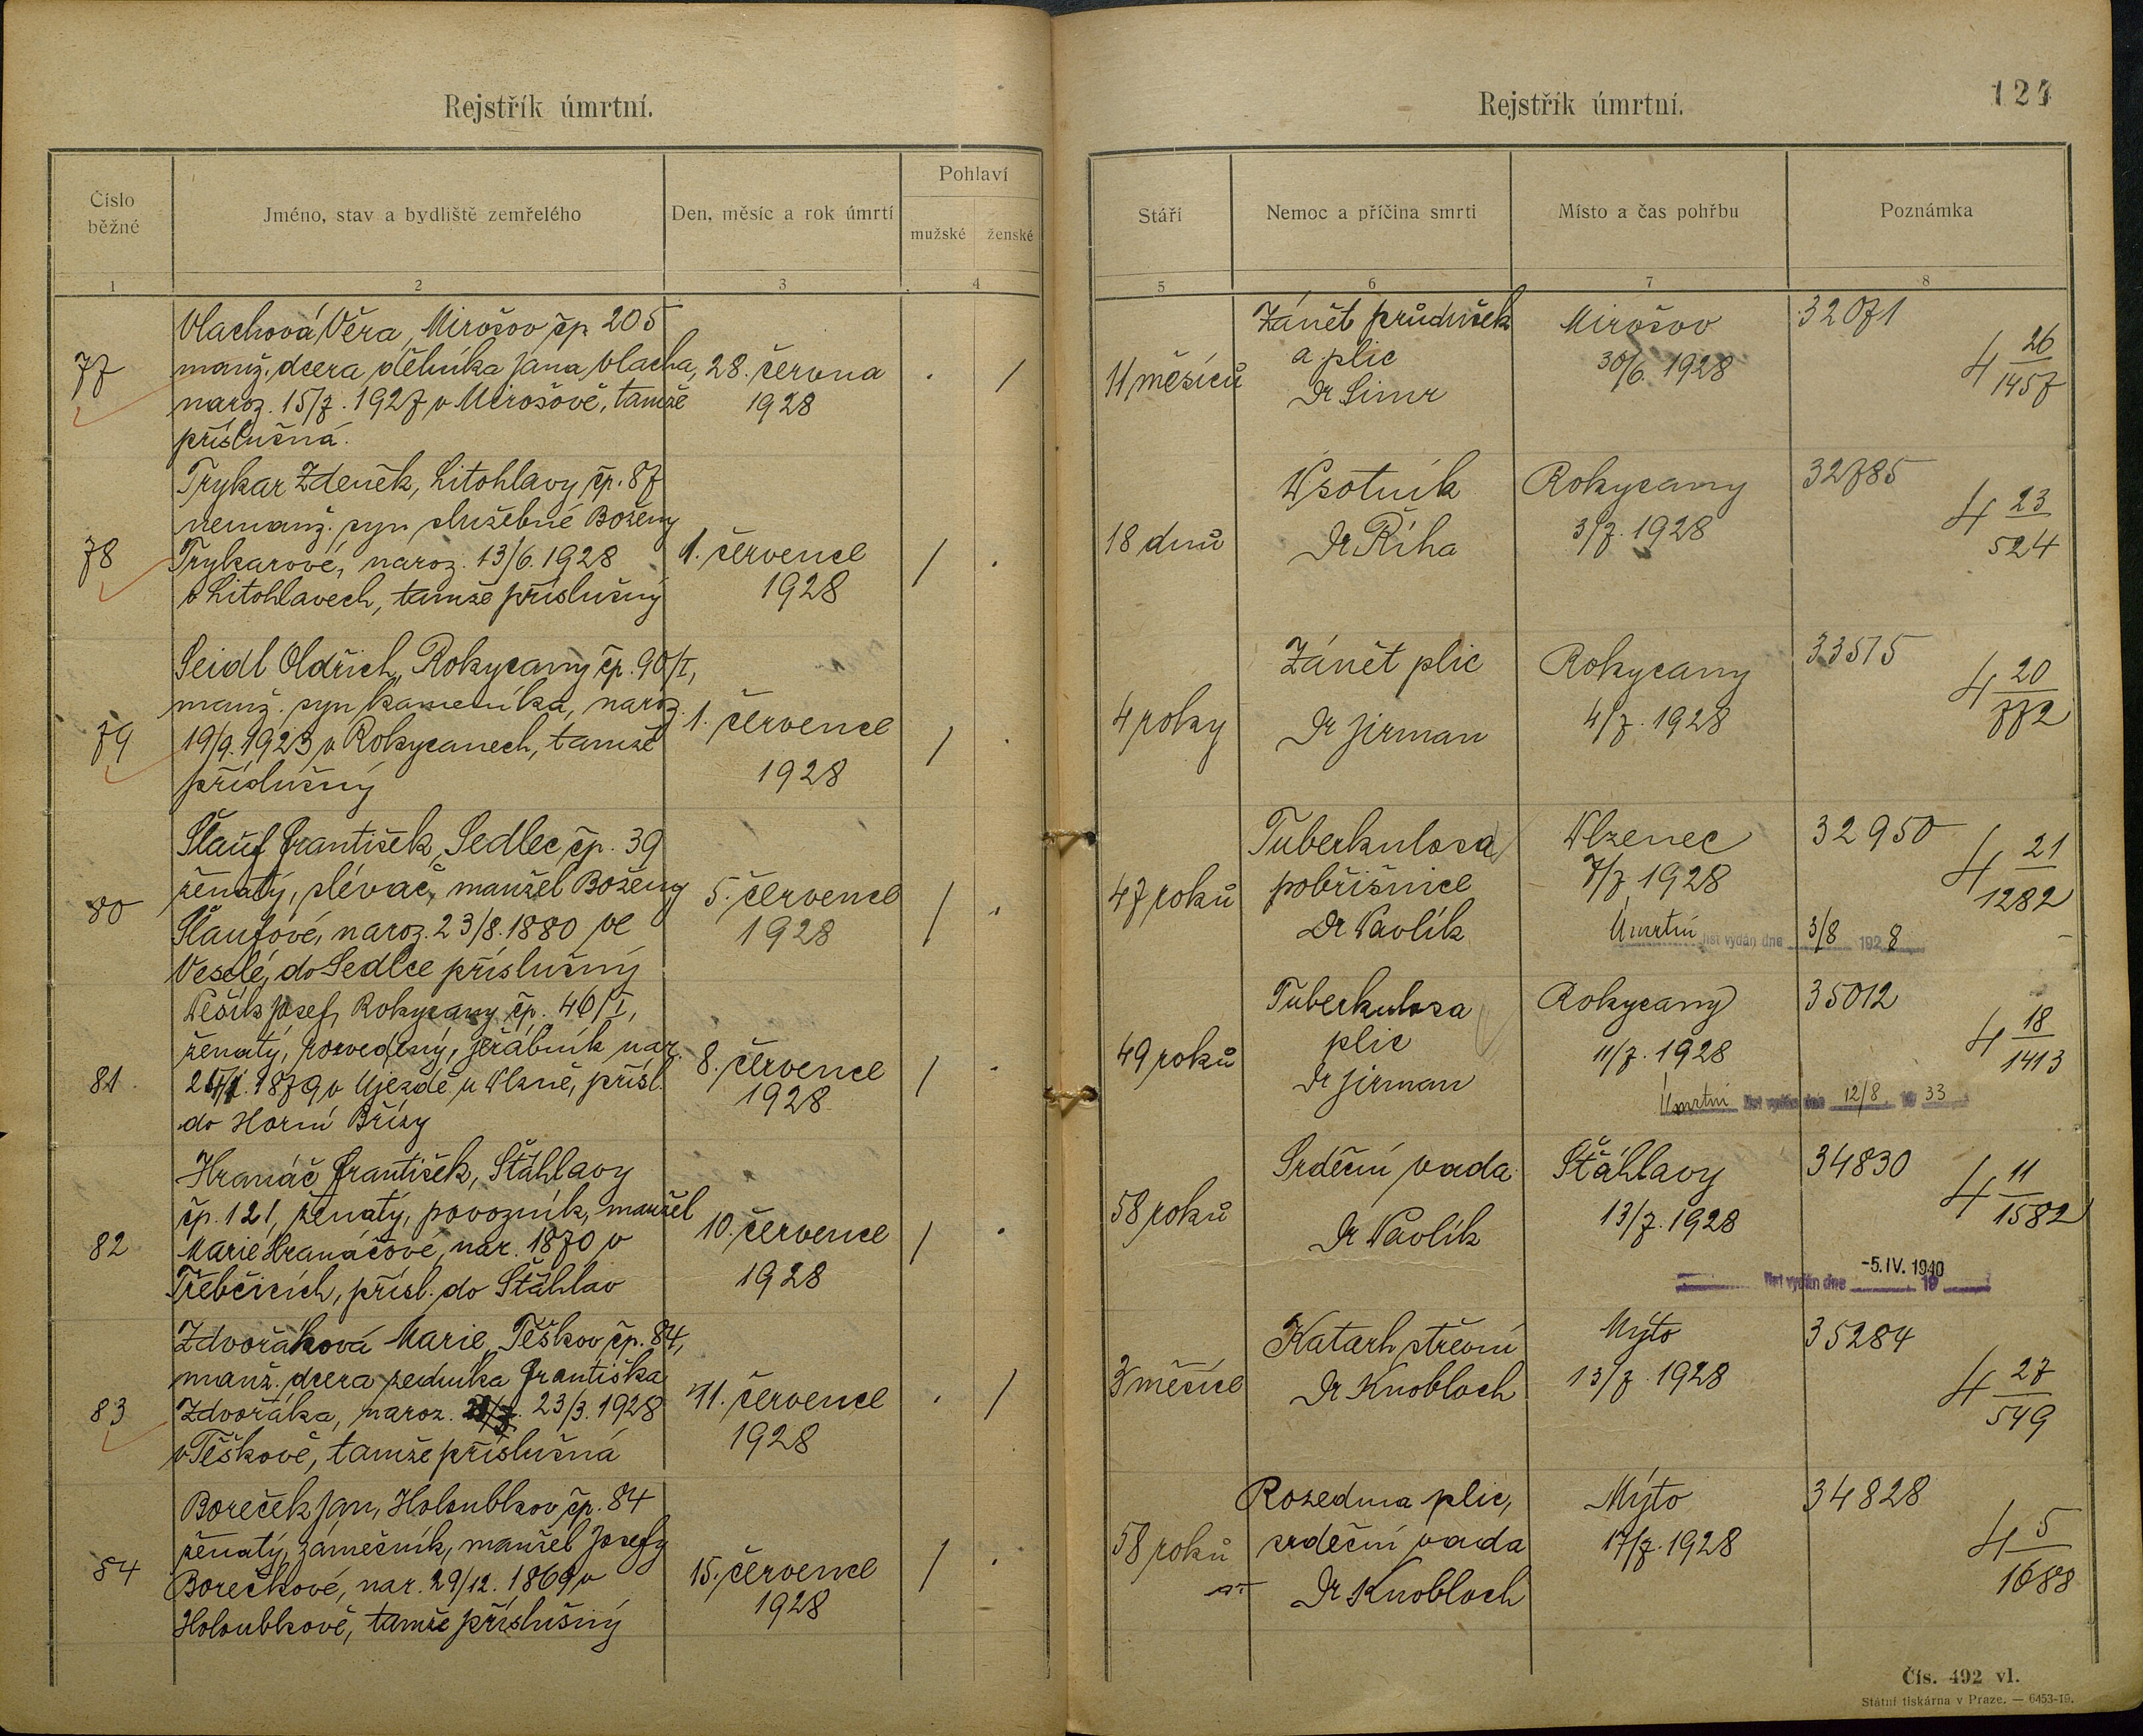 Rejstřík úmrtní.
Číslo běžné
Jméno, stav a bydliště zemřelého
Den, měsíc a rok úmrtí
Pohlaví
mužské
ženské
1
2
3
4
77
Vlachová Věra, Mirošov čp. 205
manž. dcera dělníka Jana Vlacha,
naroz. 15/7. 1927 v Mirošově, tamže
příslušná.
28. června
1928
78
Trykar Zdeněk, Litohlavy čp. 87
nemanž. syn služebné Boženy
Trykarové, naroz. 13/6. 1928
v Litohlavech, tamže příslušný
1. července
1928
79
Seidl Oldřich, Rokycany čp. 90/I,
manž. syn kameníka, naroz.
19/9. 1923 v Rokycanech, tamže
příslušný
1. července
1928
80
Šlauf František, Sedlec čp. 39
ženatý, slévač, manžel Boženy
Šlaufové, naroz. 23/8. 1880 ve
Veselé, do Sedlce příslušný
5. července
1928
81.
Pešík Josef, Rokycany čp. 46/I,
ženatý, rozvedený, jeřábník nar.
1879 v Újezdě u Plzně, přísl.
do Horní Břízy
8. července
1928
82
Hranáč František, Šťáhlavy
čp. 121, ženatý, povozník, manžel
Marie Hranáčové, nar. 1870 v
Třebčicích, přísl. do Šťáhlav
10. července
1928
83
Zdvořáková Marie, Těškov čp. 84,
manž. dcera zedníka Františka
Zdvořáka, naroz. 23/3. 1928
v Těškově, tamže příslušná
11. července
1928
84
Boreček Jan, Holoubkov čp. 84
ženatý, zámečník, manžel Josefy
Borečkové, nar. 29/12. 1869 v
Holoubkově, tamže příslušný
15. července
1928
Rejstřík úmrtní.
124
Stáří
Nemoc a příčina smrti
Místo a čas pohřbu
Poznámka
5
6
7
8
11 měsíců
Zánět průdušek
a plic
Dr Simr
Mirošov
30/6. 1928
32071
4 26/1457
18 dnů
Psotník
Dr Říha
Rokycany
3/7. 1928
32785
4 23/524
4 roky
Zánět plic
Dr Jirman
Rokycany
4/7. 1928
33515
4 20/772
47 roků
Tuberkulosa
pobřišnice
Dr Pavlík
Plzenec
7/7 1928
32950
4 21/1282
Úmrtní list vydán dne 3/8 1928
49 roků
Tuberkulosa
plic
Dr Jirman
Rokycany
11/7. 1928
35012
4 18/1413
Úmrtní list vydán dne 12/8. 1933
58 roků
Srdeční vada
Dr Pavlík
Šťáhlavy
13/7. 1928
34830
4 11/1582
list vydán dne -5. IV. 1940 19
3 měsíce
Katarh střevní
Dr Knobloch
Mýto
13/7. 1928
35284
4 27/549
58 roků
Rozedma plic,
srdeční vada
Dr Knobloch
Mýto
17/7. 1928
34828
4 5/1688
Čís. 492 vl.
Státní tiskárna v Praze. — 6453-19.